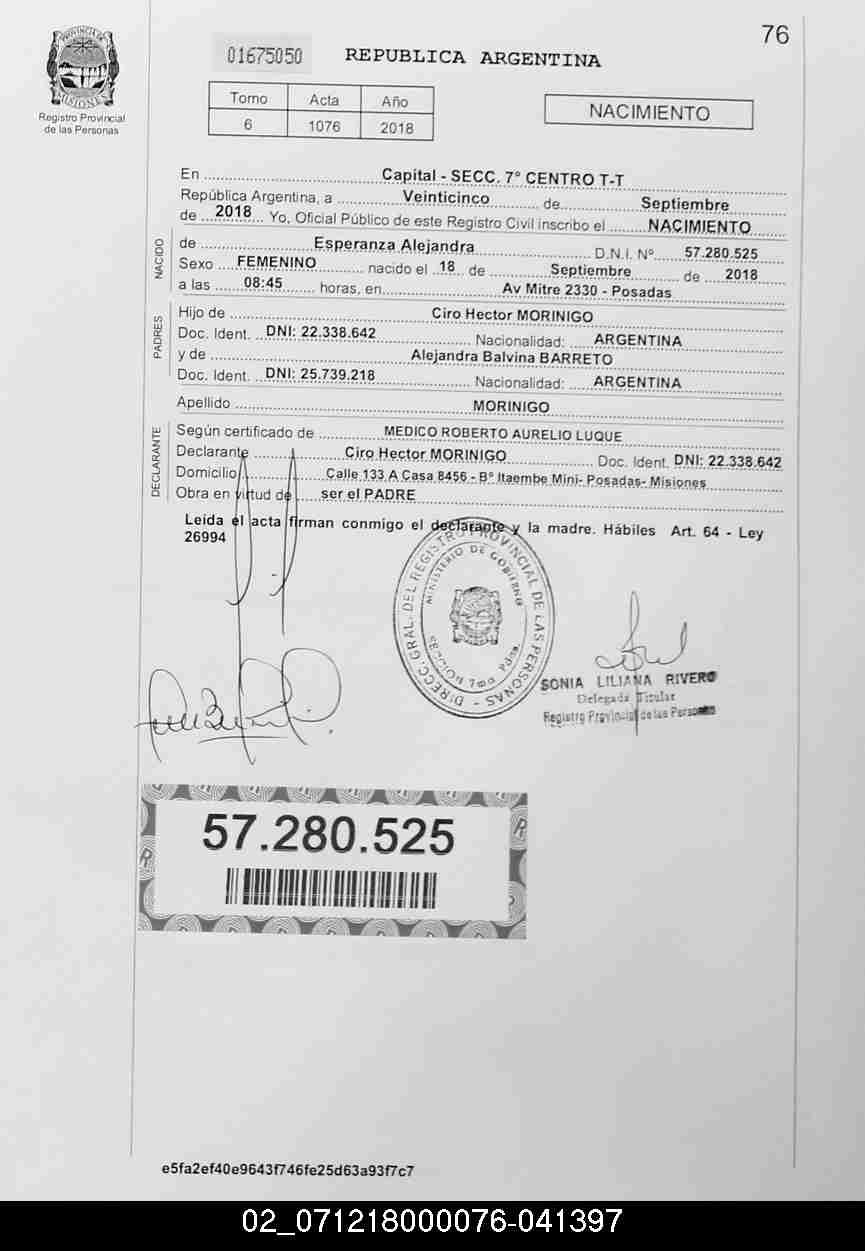 76
PROVINCIA DE
MISIONES
Registro Provincial
de las Personas
01675050 REPUBLICA ARGENTINA
Tomo Acta Año
6 1076 2018
NACIMIENTO
En Capital - SECC. 7° CENTRO T-T
República Argentina, a Veinticinco de Septiembre
de 2018 Yo, Oficial Público de este Registro Civil inscribo el NACIMIENTO
NACIDO
de Esperanza Alejandra D.N.I. Nº 57.280.525
Sexo FEMENINO nacido el 18 de Septiembre de 2018
a las 08:45 horas, en Av Mitre 2330 - Posadas
PADRES
Hijo de Ciro Hector MORINIGO
Doc. Ident. DNI: 22.338.642 Nacionalidad: ARGENTINA
y de Alejandra Balvina BARRETO
Doc. Ident. DNI: 25.739.218 Nacionalidad: ARGENTINA
Apellido MORINIGO
DECLARANTE
Según certificado de MEDICO ROBERTO AURELIO LUQUE
Declarante Ciro Hector MORINIGO Doc. Ident. DNI: 22.338.642
Domicilio Calle 133 A Casa 8456 - B° Itaembe Mini- Posadas- Misiones
Obra en virtud de ser el PADRE
Leida el acta firman conmigo el declarante y la madre. Hábiles Art. 64 - Ley
26994
DIRECC. GRAL. DEL REGISTRO PROVINCIAL DE LAS PERSONAS
MINISTERIO DE GOBIERNO
SONIA LILIANA RIVERO
Delegada Titular
Registro Provincial de las Personas
57.280.525
e5fa2ef40e9643f746fe25d63a93f7c7
02_071218000076-041397